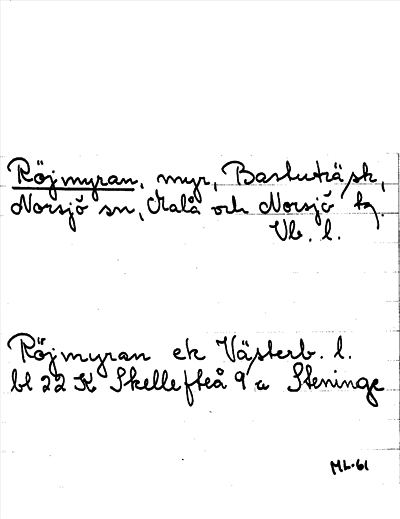 Röjmyran, myr, Bastuträsk,
Norsjö sn, Malå och Norsjö tg.
Vb. l.
Röjmyran ek Västerb. l.
bl 22 K Skellefteå 9 a Steninge
ML-61